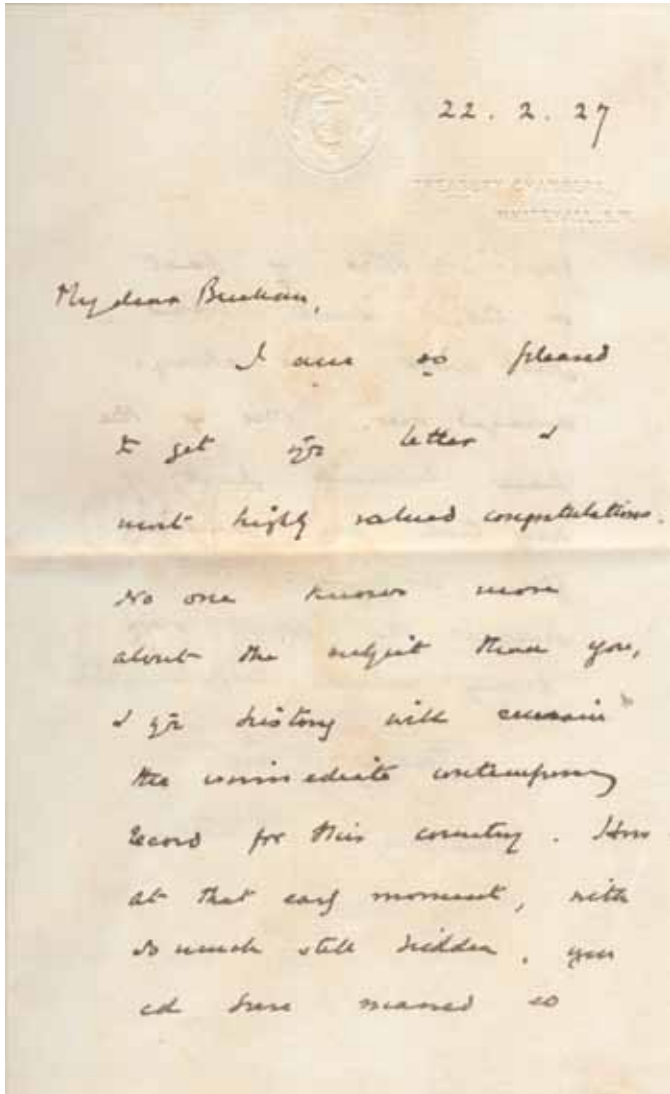 22. 2. 27
My dear Buchan,
I am so pleased
to get yr letter &
most highly valued congratulations.
No one knows more
about the subject than you,
& yr history will remain
the immediate contemporary
record for this country. How
at that early moment, with
so much still hidden, you
cd have massed so